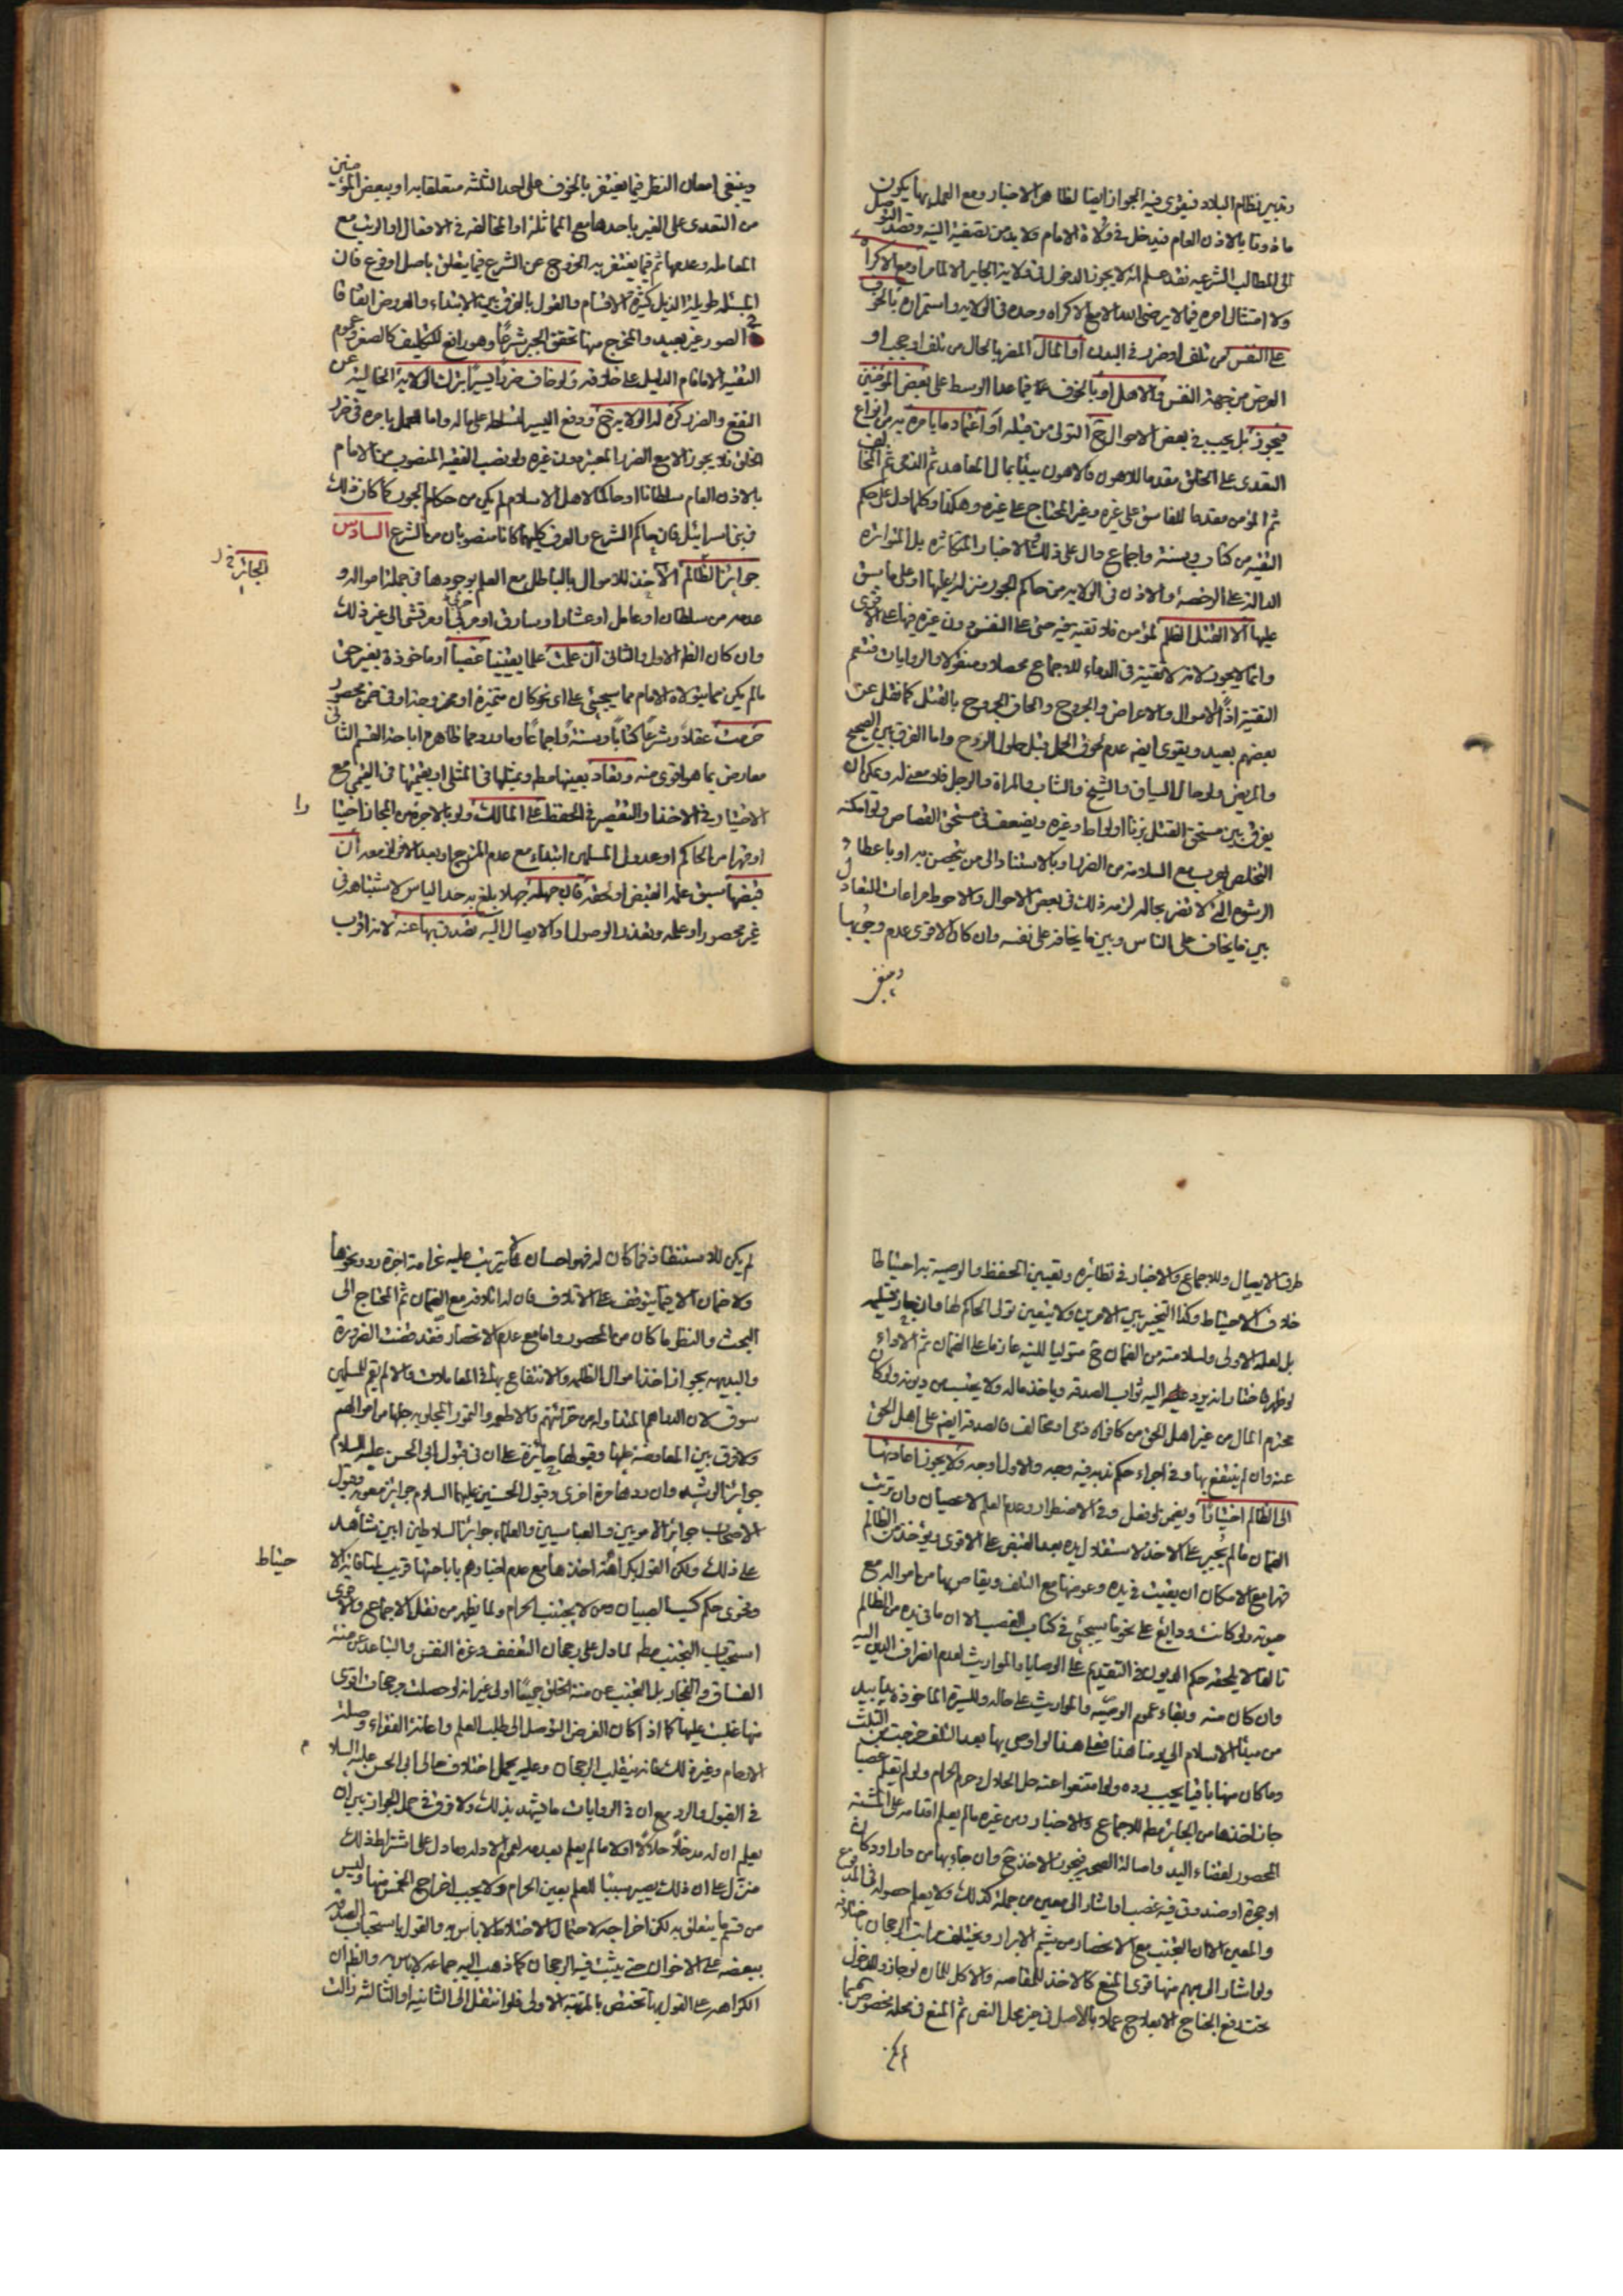 وتدبير نظام البلاد فيقوى فيه الجواز ايضا لظاهر الاخبار ومع العمل بها يكون
ماذونا بالاذن العام فيدخل في ولاة الامام ولا بد من تصفية النية وقصد التوصل
الى المطالب الشرعيه فقد علم انه لا يجوز الدخول في ولاية الجاير الا لما مر او مع الاكراه
ولا امتثال امره فيما لا يرضى الله الا مع الاكراه وحده في الولايه واستمراره بالخوف
على النفس من تلف او ضرر في البدن او المال المضر بالحال من تلف او حجب او
العرض من جهة النفس والاهل او بالخوف فيما عدا الوسط على بعض المؤمنين
فيجوز بل يجب في بعض الاحوال ح التولى من قبله او اعتماد ما يامره به من انواع
التعدى على الخلق مقدما للاهون فالاهون بيتا بمال المعاهد ثم الذمى ثم المخالف
ثم المؤمن مقدما للفاسق على غيره وغير المحتاج على غيره وهكذا وكلما دل على حكم
التقية من كتاب وسنة واجماع دال على ذلك والاخبار المتكاثره بل المتواتره
الدالة على الرخصة والاذن في الولايه من حاكم الجور منزله عليها او على ما سبق
عليها الا القتل الظلم لمؤمن فلا تقيه فيه حتى على النفس دون غيره فيها على الاقوى
وانما لا يجوز لانه لا تقية في الدماء للاجماع محصلا ومنقولا والروايات فتعم
التقية اذًا الاموال والاعراض والجروح والحاق الجروح بالقتل كما نقل عن
بعضهم بعيد ويقوى ايضه عدم لحوق الحمل قبل حلول الروح واما الفرق بين الصحيح
والمريض ولو حال السياق والشيخ والشاب والمراة والرجل فلا معنى له ويمكن ان
يفرق بين مستحق القتل بزنا او لواط وغيره ويضعف في مستحق القصاص ولو امكنه
التخلص بهرب مع السلامة من الضرر او بالاستناد الى من يتحصن به او باعطاء
الرشوه التي لا تضر بحاله لزمه ذلك في بعض الاحوال والاحوط مراعات التعادل
بين ما يخاف على الناس وبين ما يخافه على نفسه وان كان الاقوى عدم وجوبها
وينبغى
وينبغى امعان النظر فيما يغتفر بالخوف على احد الثلثة متعلقا به او ببعض المؤمنين
من التعدى على الغير باحدها مع المماثلة او المخالفه في الافعال او الريب مع
المعامله وعدمها ثم فيما يغتفر به الخروج عن الشرع فيما يتعلق باصل او فرع فان
المسئله طويلة الذيل كثيرة الاقسام والقول بالفرق بين الابتداء والعروض اتفاقا
في الصور غير بعيد والمخرج مهنا تحقق الجبر شرعًا وهو رافع للتكليف كالصغر وعموم
التقية الاما قام الدليل على خلافه ولو خاف ضررا يسيرًا بترك الولاية الخاليه عن
النفع والضرر كره له الولايه ح ودفع اليسير لتسلطه على ماله واما العمل بامره في ضرر
الخلق فلا يجوز الا مع الضرر المعتبر دون غيره ولو نصب الفقيه المنصوب من الامام
بالاذن العام سلطانا او حاكما لاهل الاسلام لم يكن من حكام الجور كما كان ذلك
في بنى اسرائيل فان حاكم الشرع والعرف كليهما كانا منصوبان من الشرع السادس
جوايز الظالم الاخذ للاموال بالباطل مع العلم بوجودها في جملة امواله و
عدمه من سلطان او عامل او عشار او سارق او حربى او مرتشى الى غير ذلك
وان كان الظ الاول والثانى ان علمت علما يقينيا غصبا او ماخوذة بغير حق
مالم يكن مما يتولاه الامام مما سيجئ على اى نحو كان متميزة او ممزوجة او في ضمن محصور
حرمت عقلا وشرعا كتابا وسنة واجماعا وما ورد مما ظاهره اباحة القسم الثانى
معارض بما هو اقوى منه وتعاد بعينها مط وبمثلها في المثلى او بقيمتها في القيمى مع
الاختيار في الاخذ او التقصير في الحفظ على المالك ولو بالاجره من المجاز اختيا را
او قهرا من الحاكم او عدول المسلمين ابتداء مع عدم المزج او بعد الافراز معه ان
قبضها سبق علمه القبض او لحقه فان جهله جهلا بلغ به حد الياس لاشتباهه في
غير محصور او علمه وتعذر الوصول او الايصال اليه تصدق بها عنه لانه اقرب
الجائزة
طرق الايصال وللاجماع والاخبار في نظائره وتعيين الحفظ والوصية به احتياطا
خلاف الاحتياط وكذا التخيير بين الامرين ولا يتعين تولى الحاكم لها وان جاز تسليمه
بل لعله الاولى ولسلامته من الضمان ح متوليا للنية عازما على الضمان ثم الاداء
لو ظهر فاختار انه يرد عليه اليه ثواب الصدقه وياخذ ماله ولا يحتسب من دينه ولو كان
محترم المال من غير اهل الحق من كافر او ذمى او مخالف فالصدقه ايضه على اهل الحق
عنه وان لم ينتفع بها وفي اجراء حكم نذره فيه وجه والاول اوجه ولا يجوز اعادتها
الى الظالم اختيارًا ويضمن لو فعل وفي الاضطرار وعدم العلم لا عصيان وان ترتب
الضمان مالم يجبر على الاخذ لاستقلال يده بعد القبض على الاقوى ويؤخذ من الظالم
قهرا مع الامكان ان بقيت في يده وعوضها مع التلف ويقاص بها من امواله مع
موته ولو كانت ودايع على نحو ما سيجئ في كتاب الغصب الا ان ما في يده من الظالم
تالفا لا يلحقه حكم الديون في التقديم على الوصايا والمواريث لعدم انصراف الدين اليه
وان كان منه وبقاء عموم الوصيه والمواريث على حاله وللسيرة الماخوذة يدا بيد
من مبدا الاسلام الى يومنا هذا فعلى هذا لو اوصى بها بعد التلف خرجت من الثلث
وما كان منها باقيا يجب رده ولو امتنعوا عنه حل الحلال وحرم الحرام ولو لم يعلم غصبا
جاز اخذها من الجائر مط للاجماع والاخبار ومن غيره مالم يعلم اقدامه على المشتبه
المحصور لقضاء اليد واصالة الصحه فيجوز الاخذ ح وان جاء بها من دار او دكان
او حجرة او صندوق فيه غصب او اشار الى معين من جملة كذلك ولا يعلم حصوله في المدفوع
والمعين الا ان التجنب مع الانحصار من شيم الابرار ويختلف مراتب الرجحان باختلافه
ولو اشار الى مبهم منها قوى المنع كالاخذ للمقاصه والاكل للماره لو جاز والدخول
تحت رفع الجناح الا بعلاج عملا بالاصل في غير محل النص ثم المنع في محله مخصوص بما
لم يكن للاستنقاذ فما كان له فهو احسان لا يترتب عليه غرامة اجرة رد ونحوها
ولا ضمان الا فيما يتوقف على الاتلاف فان له اتلافه مع الضمان ثم المحتاج الى
البحث والنظر ما كان من المحصور واما مع عدم الانحصار فقد قضت الضرورة
والبديهه بجواز اخذ اموال الظلمه والانتفاع بها في المعاملات والا لم يقم للمسلمين
سوق لان الدراهم المتداوله من خزائنهم والاطعمه والتمور المجلوبه جلها من اموالهم
ولا فرق بين المعاوضة عليها وقبولها جائزة على ان في قبول ابى الحسن عليه السلام
جوائز الرشيد وان ردها مرة اخرى وقبول الحسنين عليهما السلام جوايز معويه وقبول
الاصحاب جوائز الامويين والعباسيين والعلماء جوائز السلاطين ابين شاهد
على ذلك ولكن القول بكراهة اخذها مع عدم اخبارهم باباحتها قريب لمنافاته الا حتياط
وفحوى حكم كسب الصبيان ومن لا يجتنب الحرام ولما يظهر من نقل الاجماع والاقوى
استحباب التجنب مط لما دل على رجحان التعفف وعزة النفس والتباعد عن منة
الفساق والفجار بل التجنب عن منة الخلق جميعًا اولى غير انه لو حصلت مرجحات اقوى
منها غلبت عليها كما اذا كان الغرض التوصل الى طلب العلم واعانة الفقراء وصلة
الارحام وغير ذلك فانه ينقلب الرجحان وعليه يحمل اختلاف حالى ابى الحسن عليه السلا م
في القبول والرد مع ان في الروايات ما يشهد بذلك ولا فرق في حل الجواز بين ان
يعلم ان له مدخلا حلالا او لا مالم يعلم بعدمه لعموم الادله وما دل على اشتراط ذلك
منزل على ان ذلك يصير سببا للعلم بعين الحرام ولا يجب اخراج الخمس منها وليس
من قسم ما يتعلق به لكن اخراجه لاحتمال الاختلاط لا باس به والقول باستحباب الصدقه
ببعضه على الاخوان حتى يثبت فيه الرجحان كما ذهب اليه جماعه لا باس به والظ ان
الكراهه على القول بها تختص بالمرتبة الاولى فلو انتقل الى الثانيه او الثالثه زالت